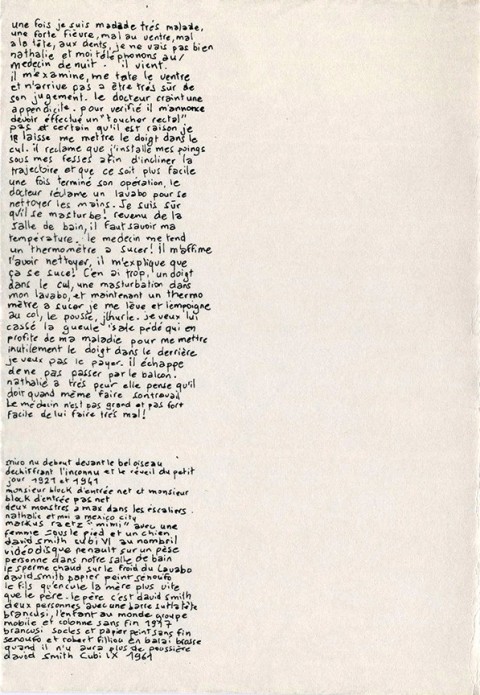 une fois je suis madade très malade,
une forte fièvre, mal au ventre, mal
a la tête, aux dents, je ne vais pas bien
nathalie et moi téléphonons au/
medecin de nuit. il vient.
il m'examine, me tate le ventre
et n'arrive pas a être très sur de
son jugement. le docteur craint une
appendicite. pour vérifié il m'annonce
devoir effectué un "toucher rectal"
pas et certain qu'il est raison je
le laisse me mettre le doigt dans le
cul. il réclame que j'installe mes poings
sous mes fesses afin d'incliner la
trajectoire et que ce soit plus facile
une fois terminé son opération, le
docteur réclame un lavabo pour se
nettoyer les mains. Je suis sûr
qu'il se masturbe! revenu de la
salle de bain, il faut savoir ma
température. le medecin me tend
un thermomètre a sucer! il m'affime
l'avoir nettoyer, il m'explique que
ça se suce! C'en ai trop, un doigt
dans le cul, une masturbation dans
mon lavabo, et maintenant un thermo
mètre a sucer je me lève et l'empoigne
au col, le pousse, j'hurle. je veux lui
cassé la gueule "sale pédé qui en
profite de ma maladie pour me mettre
inutilement le doigt dans le derrière
je veux pas le payer. il échappe
de ne pas passer par le balcon.
nathalie a très peur elle pense qu'il
doit quand même faire son travail
Le médecin n'est pas grand et pas fort
facile de lui faire très mal!
miro nu debout devant le bel oiseau
dechiffrant l'inconnu et le réveil du petit
jour 1921 et 1941
monsieur block d'entrée net et monsieur
block d'entrée pas net
deux monstres a max dans les éscaliers.
nathalie et moi a mexico city
markus raetz "mimi" avec une
femme sous le pied et un chien
david smith cubi VI au nombril
vidéo disque renault sur un pèse
personne dans notre salle de bain
le sperme chaud sur le froid du lavabo
david smith papier peint senoufo
le fils qu'encule la mère plus vite
que le père. le père c'est david smith
deux personnes avec une barre sur la tête
brancusi, l'enfant au monde groupe
mobile et colonne sans fin 1917
brancusi socles et papier peint sans fin
senoufo et robert filliou en balai brosse
quand il n'y aura plus de poussière
david smith Cubi IX 1961